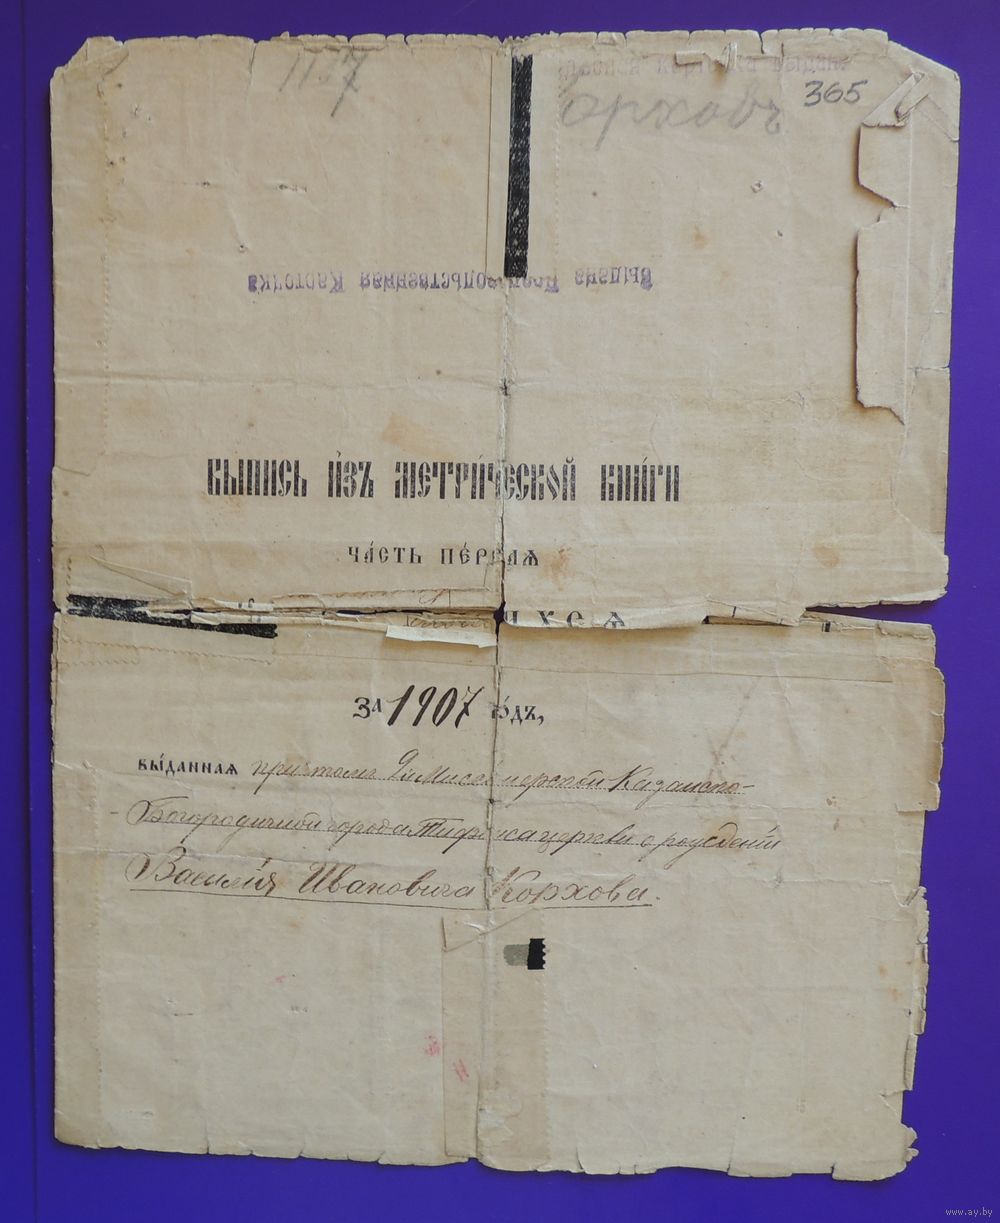 1117
365
Орховъ
Выдана Продовольственная Карточка
ВЫПИСЬ ИЗЪ МЕТРИЧЕСКОЙ КНИГИ
ЧАСТЬ ПЕРВАЯ
ЗА 1907 ГОДЪ,
ВЫДАННАЯ причтомъ Миссіонерской Казанско-
Богородичной города Тифлиса церкви о рожденіи
Василія Ивановича Корхова.
www.ay.by